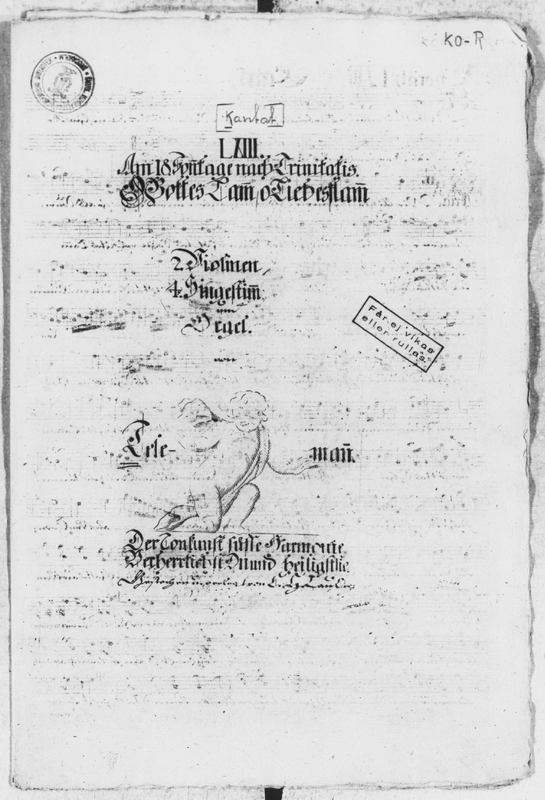 KO-R
Kantat
LXIII.
Am 18 Sonntage nach Trinitatis.
O Gottes Lam̅ o Liebesflam̅
2. Violinen,
4. Singestim̅
und
Orgel.
von
Får ej vikas
eller rullas.
Tele- man̅.
Der Tonkunst süsse Harmonie
Verherrlichst Du und heiligst sie